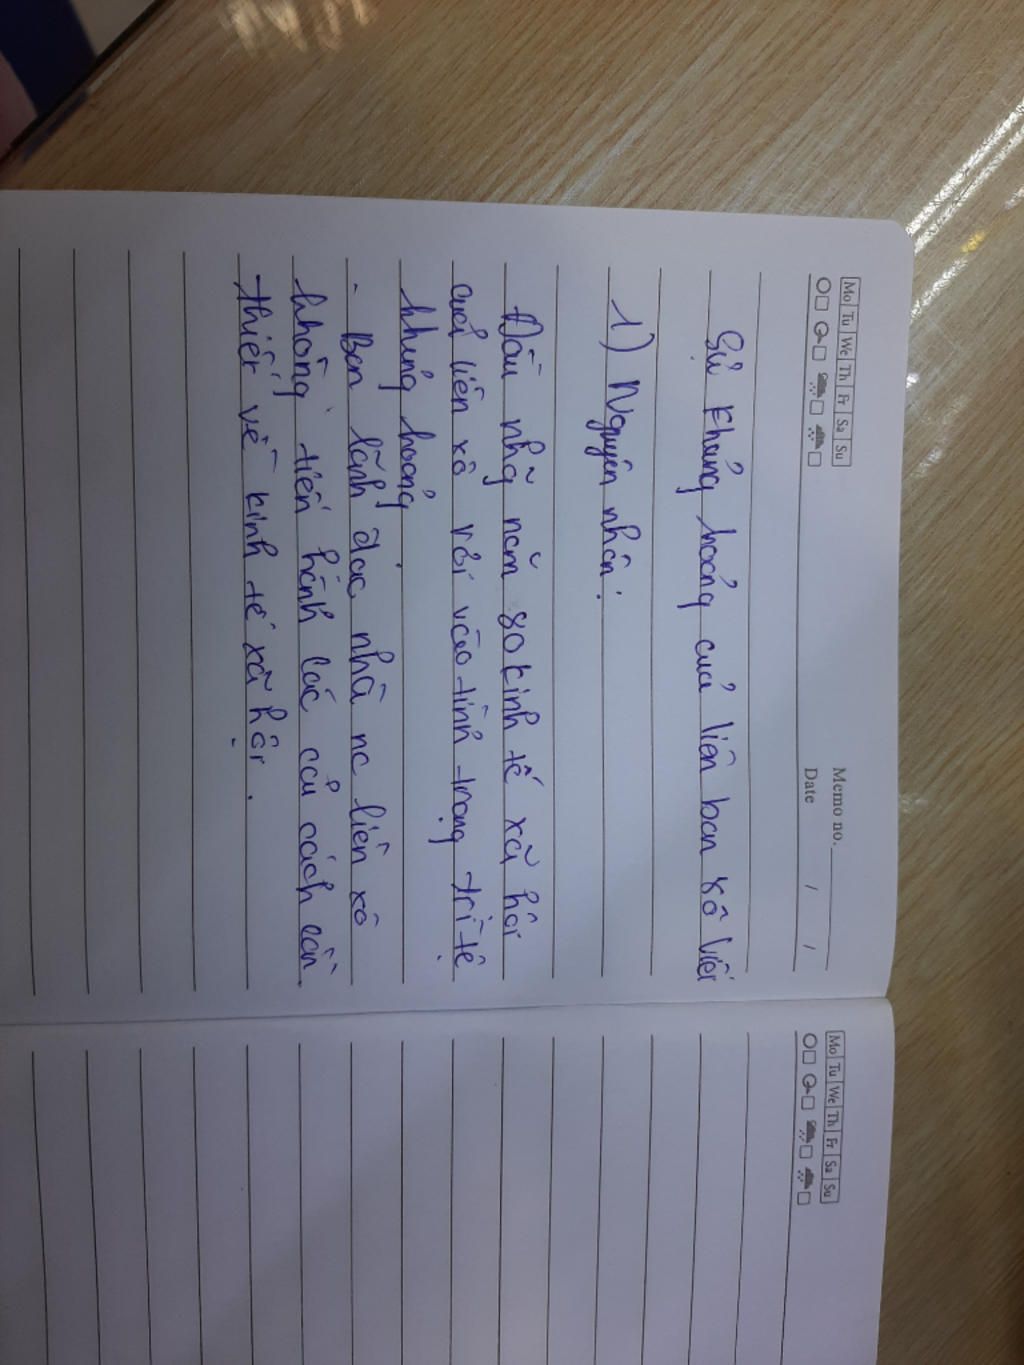 Mo Tu We Th Fr Sa Su
Memo no.
Date / /
Sự khủng hoảng của liên bang xô viết
1) Nguyên nhân:
Đầu nhg năm 80 kinh tế xã hội
của liên xô rơi vào tình trạng trì tệ
khủng hoảng.
- Ban lãnh đạo nhà nc liên xô
không tiến hành các cải cách cần
thiết về kinh tế xã hội.
Mo Tu We Th Fr Sa Su